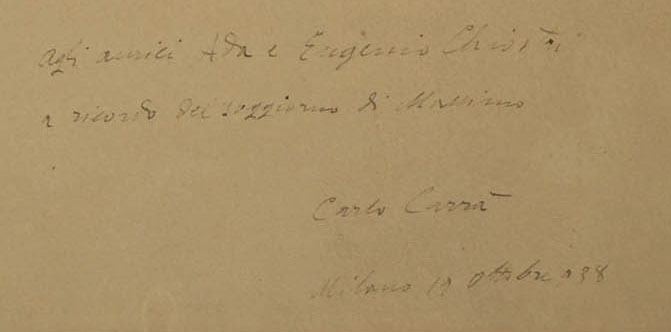 agli amici Ada e Eugenio Chiostri
a ricordo del soggiorno di Massimo
Carlo Carrà
Milano 19 ottobre 938